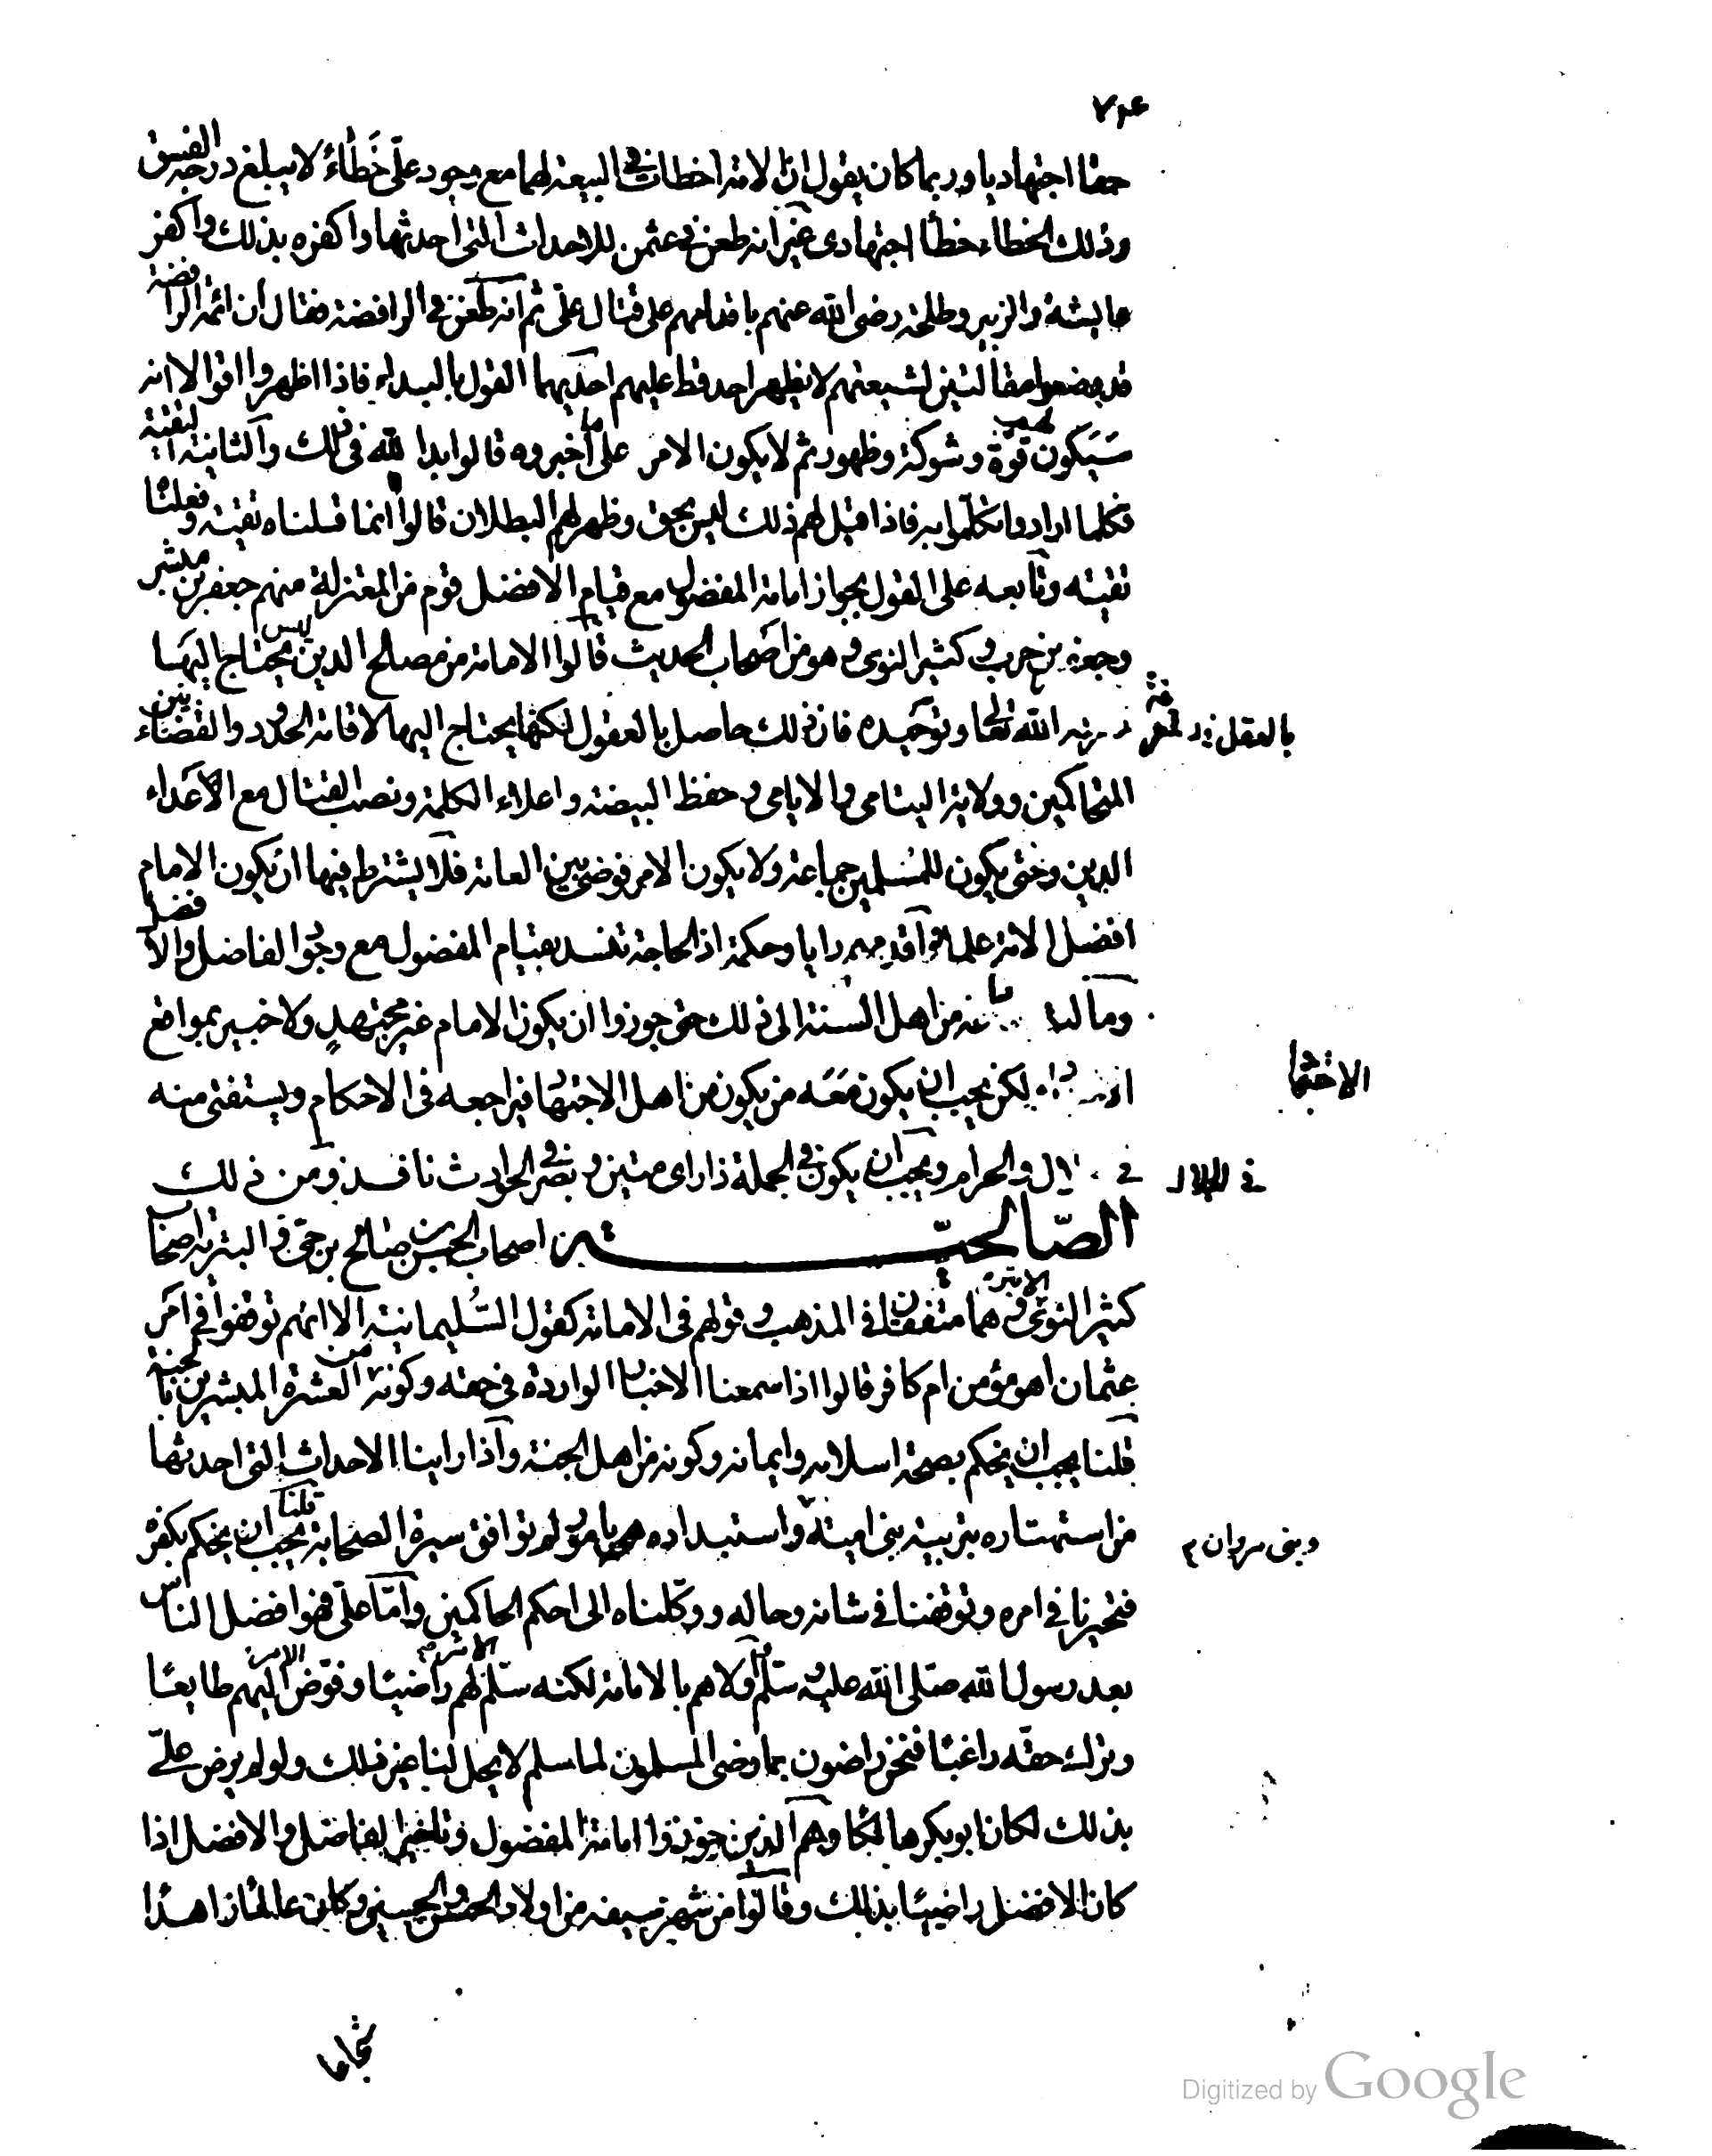 حقا اجتهاديا وربما كان يقول ان الامة اخطات في البيعة لهما مع وجود علي خطاء لا يبلغ درجة الفسق
وذلك الخطاء خطأ اجتهادي غير انه طعن في عثمن للاحداث التي احدثها واكفره بذلك واكفر
عايشة والزبير وطلحة رضي الله عنهم باقدامهم على قتال علي ثم انه طعن في الرافضة فقال ان ائمة الرافضة
قد وضعوا مقالتين لشيعتهم لا يظهر احد قط عليهم احديهما القول بالبداء فاذا اظهروا اقوالا انه
سيكون لهم قوة وشوكة وظهور ثم لا يكون الامر على ما اخبروه قالوا بدا لله في ذلك والثانية التقية
فكلما ارادوا تكلموا به فاذا قيل لهم ذلك ليس بحق وظهر لهم البطلان قالوا انما قلناه تقية وفعلنا
تقيته وتابعه على القول بجواز امامة المفضول مع قيام الافضل قوم من المعتزلة منهم جعفر بن مبشر
وجعفر بن حرب وكثير النوى وهو من اصحاب الحديث قالوا الامامة من مصالح الدين ليس يحتاج اليها
الله تعالى وتوحيده فان ذلك حاصل بالعقول لكنها يحتاج اليها لاقامة الحدود والقضاء بين
بالعقل
المتحاكمين وولاية اليتامى والايامى وحفظ البيضة واعلاء الكلمة ونصب القتال مع الاعداء
الدين وحتى يكون للمسلمين جماعة ولا يكون الامر فوضى بين العامة فلا يشترط فيها ان يكون الامام
افضل الامة علما واقدمهم رايا وحكمة اذ الحاجة تنسد بقيام المفضول مع وجود الفاضل والافضل
ومالت من اهل السنة الى ذلك حتى جوزوا ان يكون الامام غير مجتهد ولا خبير بمواقع
الاجتهاد
لكن يجب ان يكون معه من يكون من اهل الاجتهاد فيراجعه في الاحكام ويستفتى منه
في الحلال
والحرام ويجب ان يكون في الجملة ذا راى متين وبصر في الحوادث نافذ ومن ذلك
الصّالحيّة اصحاب الحسن بن صالح بن حي والبترية اصحاب
كثير النوى الابتر وهما متفقان في المذهب وقولهم في الامامة كقول السليمانية الا انهم توقفوا في امر
عثمان اهو مؤمن ام كافر قالوا اذا سمعنا الاخبار الواردة في حقه وكونه من العشرة المبشرين بالجنة
قلنا يجب ان يحكم بصحة اسلامه وايمانه وكونه من اهل الجنة واذا راينا الاحداث التي احدثها
من استهتاره بتربية بني امية واستبداده بامور لم توافق سيرة الصحابة قلنا يجب ان يحكم بكفره
وبنى مروان
فتحيرنا في امره وتوقفنا في شانه وحاله ووكلناه الى احكم الحاكمين واما علي فهو افضل الناس
بعد رسول الله صلى الله عليه وسلم واولاهم بالامامة لكنه سلم الامر لهم راضيا وفوض الامر اليهم طايعا
وترك حقه راغبا فنحن راضون بما رضى المسلمون لما سلم لا يحل لنا غير ذلك ولو لم يرض علي
بذلك لكان ابو بكر هالكا وهم الذين جوزوا امامة المفضول وتاخير الفاضل والافضل اذا
كان الافضل راضيا بذلك وقالوا من شهر سيفه من اولاد الحسن والحسين وكان عالما زاهدا
شجاعا
Digitized by Google